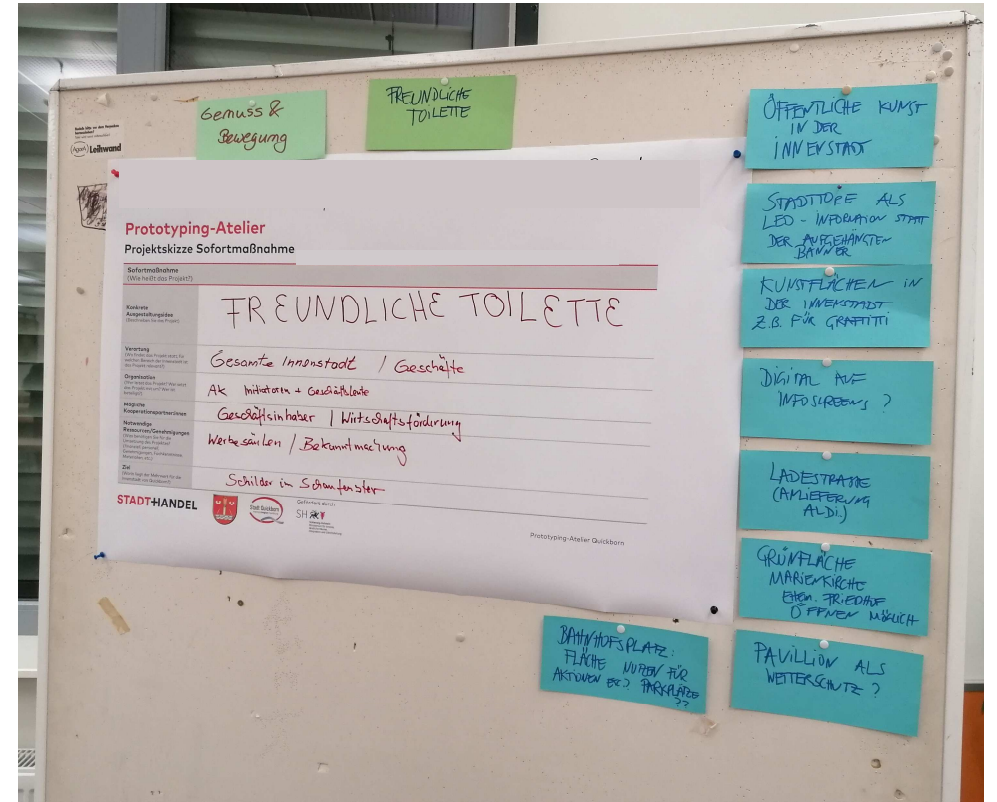 Genuss &
Bewegung
FREUNDLICHE
TOILETTE
Leihwand
Prototyping-Atelier
Projektskizze Sofortmaßnahme
Sofortmaßnahme
(Wie heißt das Projekt?)
Konkrete
Ausgestaltungsidee
(Beschreiben Sie das Projekt)
FREUNDLICHE TOILETTE
Verortung
Gesamte Innenstadt / Geschäfte
Organisation
AK Initiatoren + Geschäftsleute
Mögliche
Kooperationspartner:innen
Geschäftsinhaber / Wirtschaftsförderung
Notwendige
Ressourcen/Genehmigungen
Werbesäulen / Bekanntmachung
Ziel
Schilder im Schaufenster
STADT+HANDEL
Stadt Quickborn
Gefördert durch:
SH
Prototyping-Atelier Quickborn
ÖFFENTLICHE KUNST
IN DER
INNENSTADT
STADTTORE ALS
LED - INFORMATION STATT
DER AUFGEHÄNGTEN
BANNER
KUNSTFLÄCHEN IN
DER INNENSTADT
Z.B. FÜR GRAFFITTI
DIGITAL AUF
INFOSCREENS ?
LADESTRASSE
(ANLIEFERUNG
ALDI.)
GRÜNFLÄCHE
MARIENKIRCHE
EHEM. FRIEDHOF
ÖFFNEN MÖGLICH
BAHNHOFSPLATZ:
FLÄCHE NUTZEN FÜR
AKTIONEN ETC? PARKPLÄTZE
??
PAVILLION ALS
WETTERSCHUTZ ?